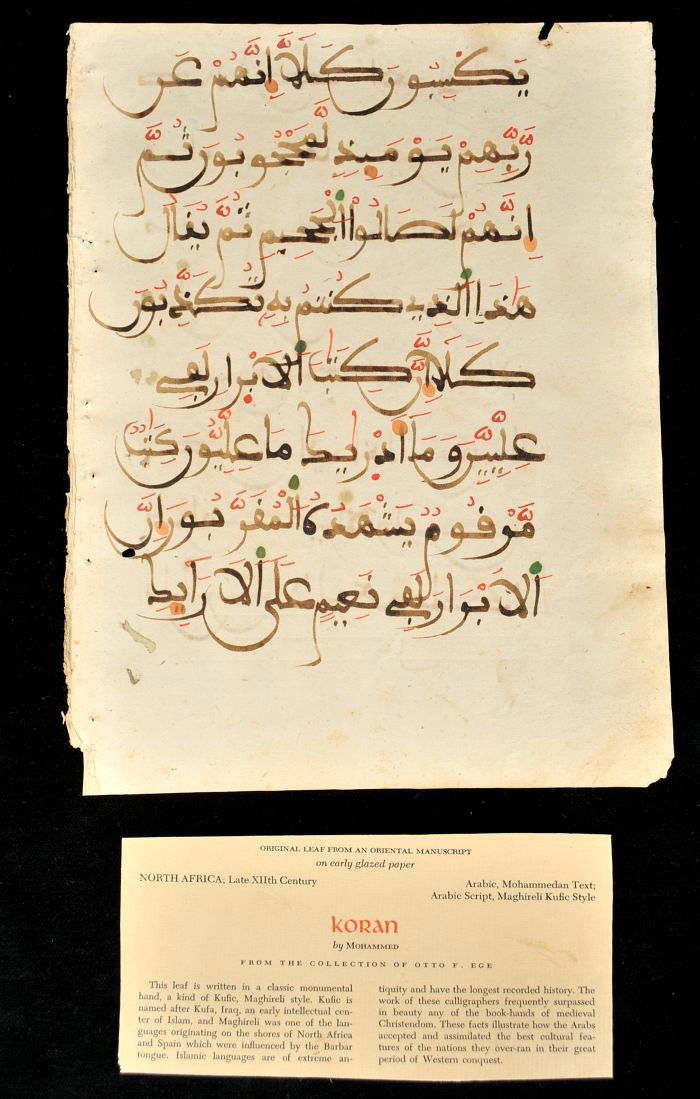 يَكْسِبُونَ كَلَّا إِنَّهُمْ عَن
رَّبِّهِمْ يَوْمَئِذٍ لَّمَحْجُوبُونَ ثُمَّ
إِنَّهُمْ لَصَالُوا الْجَحِيمِ ثُمَّ يُقَالُ
هَٰذَا الَّذِي كُنتُم بِهِ تُكَذِّبُونَ
كَلَّا إِنَّ كِتَٰبَ الْأَبْرَارِ لَفِي
عِلِّيِّينَ وَمَا أَدْرَيٰكَ مَا عِلِّيُّونَ كِتَٰبٌ
مَّرْقُومٌ يَشْهَدُهُ الْمُقَرَّبُونَ إِنَّ
الْأَبْرَارَ لَفِي نَعِيمٍ عَلَى الْأَرَائِكِ
ORIGINAL LEAF FROM AN ORIENTAL MANUSCRIPT
on early glazed paper
NORTH AFRICA; Late XIIth Century
Arabic, Mohammedan Text;
Arabic Script, Maghireli Kufic Style
KORAN
by MOHAMMED
FROM THE COLLECTION OF OTTO F. EGE
This leaf is written in a classic monumental
hand, a kind of Kufic, Maghireli style. Kufic is
named after Kufa, Iraq, an early intellectual cen-
ter of Islam, and Maghireli was one of the lan-
guages originating on the shores of North Africa
and Spain which were influenced by the Barbar
tongue. Islamic languages are of extreme an-
tiquity and have the longest recorded history. The
work of these calligraphers frequently surpassed
in beauty any of the book-hands of medieval
Christendom. These facts illustrate how the Arabs
accepted and assimilated the best cultural fea-
tures of the nations they over-ran in their great
period of Western conquest.